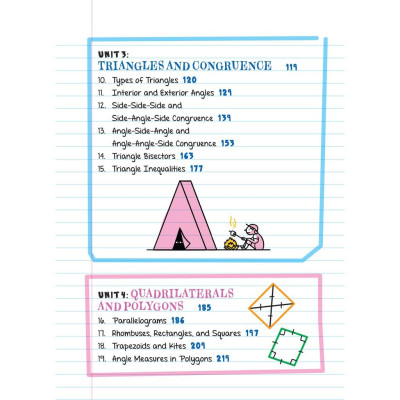 UNIT 3:
TRIANGLES AND CONGRUENCE 119
10. Types of Triangles 120
11. Interior and Exterior Angles 129
12. Side-Side-Side and
Side-Angle-Side Congruence 139
13. Angle-Side-Angle and
Angle-Angle-Side Congruence 153
14. Triangle Bisectors 163
15. Triangle Inequalities 177
UNIT 4: QUADRILATERALS
AND POLYGONS 185
16. Parallelograms 186
17. Rhombuses, Rectangles, and Squares 197
18. Trapezoids and Kites 209
19. Angle Measures in Polygons 219